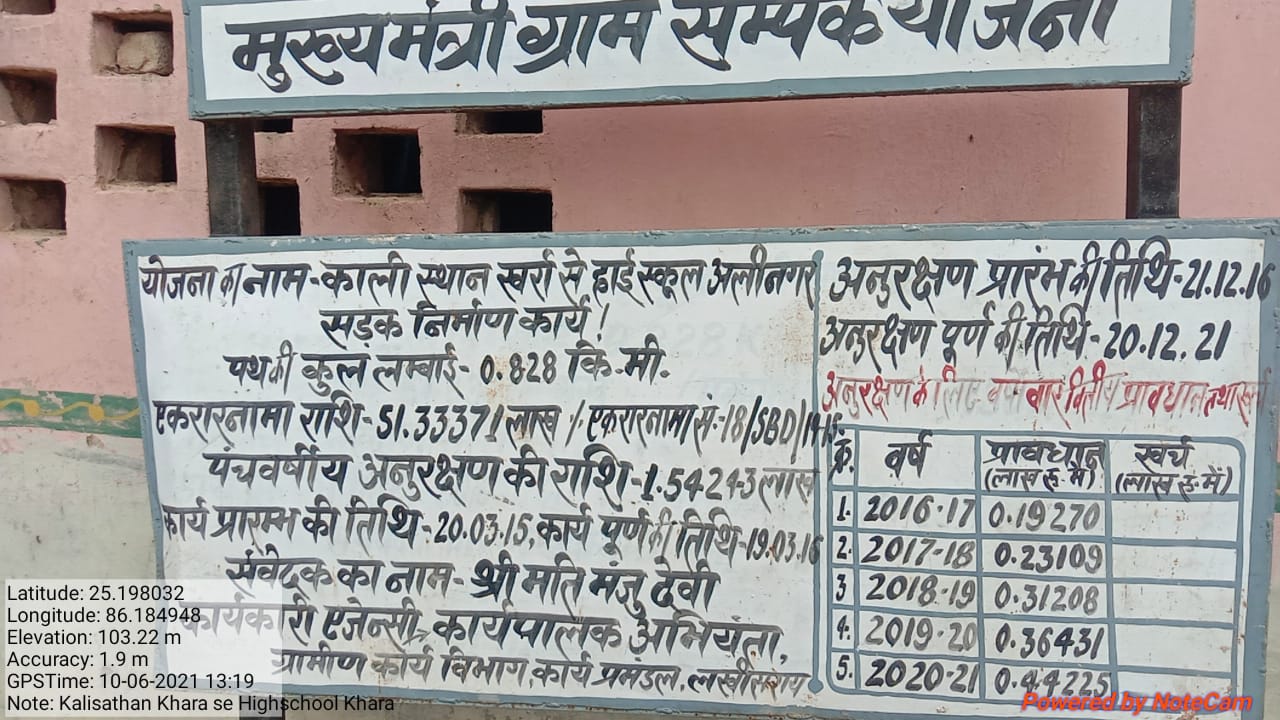 मुख्यमंत्री ग्राम सम्पर्क योजना
योजना का नाम-काली स्थान खर्रा से हाई स्कूल अलीनगर
सड़क निर्माण कार्य!
पथ की कुल लम्बाई- 0.828 कि.मी.
एकरारनामा राशि-51.33371 लाख / एकरारनामा सं-18/SBD/14-15
पंचवर्षीय अनुरक्षण की राशि-1.54243 लाख
कार्य प्रारम्भ की तिथि-20.03.15, कार्य पूर्ण की तिथि-19.03.16
संवेदक का नाम- श्रीमति मंजु देवी
कार्यकारी एजेन्सी, कार्यपालक अभियंता,
ग्रामीण कार्य विभाग, कार्य प्रमंडल, लखीसराय
अनुरक्षण प्रारंभ की तिथि-21.12.16
अनुरक्षण पूर्ण की तिथि-20.12.21
अनुरक्षण के लिए वर्ष वार वित्तीय प्रावधान तथा खर्च
क्र. वर्ष प्रावधान (लाख रु. में) खर्च (लाख रु. में)
1. 2016-17 0.19270
2. 2017-18 0.23109
3 2018-19 0.31208
4. 2019-20 0.36431
5. 2020-21 0.44225
Latitude: 25.198032
Longitude: 86.184948
Elevation: 103.22 m
Accuracy: 1.9 m
GPSTime: 10-06-2021 13:19
Note: Kalisathan Khara se Highschool Khara
Powered by NoteCam